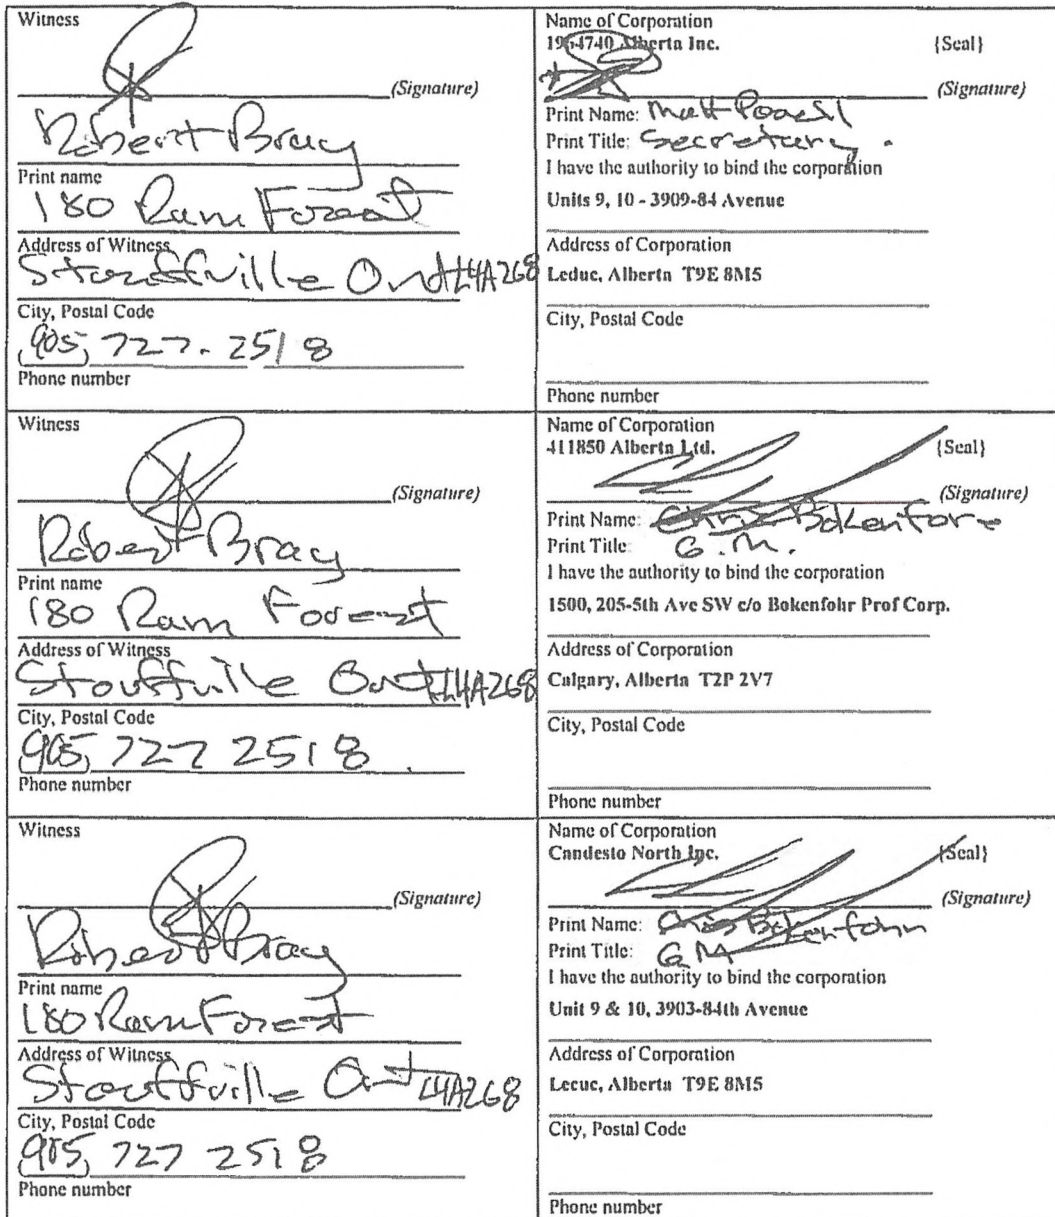 Witness
(Signature)
Robert Bray
Print name
180 Ram Forest
Address of Witness
Stouffville Ont L4A2G8
City, Postal Code
(905) 727-2518
Phone number
Name of Corporation
1964740 Alberta Inc. {Seal}
(Signature)
Print Name: Matt
Print Title: Secretary.
I have the authority to bind the corporation
Units 9, 10 - 3909-84 Avenue
Address of Corporation
Leduc, Alberta T9E 8M5
City, Postal Code
Phone number
Witness
(Signature)
Robert Bray
Print name
180 Ram Forest
Address of Witness
Stouffville Ont L4A2G8
City, Postal Code
(905) 727 2518
Phone number
Name of Corporation
411850 Alberta Ltd. {Seal}
(Signature)
Print Name: Chris
Print Title: G.M.
I have the authority to bind the corporation
1500, 205-5th Ave SW c/o Bokenfohr Prof Corp.
Address of Corporation
Calgary, Alberta T2P 2V7
City, Postal Code
Phone number
Witness
(Signature)
Robert Bray
Print name
180 Ram Forest
Address of Witness
Stouffville Ont L4A2G8
City, Postal Code
(905) 727 2518
Phone number
Name of Corporation
Candesto North Inc. {Seal}
(Signature)
Print Name: Chris Bokenfohr
Print Title: GM
I have the authority to bind the corporation
Unit 9 & 10, 3903-84th Avenue
Address of Corporation
Lecuc, Alberta T9E 8M5
City, Postal Code
Phone number